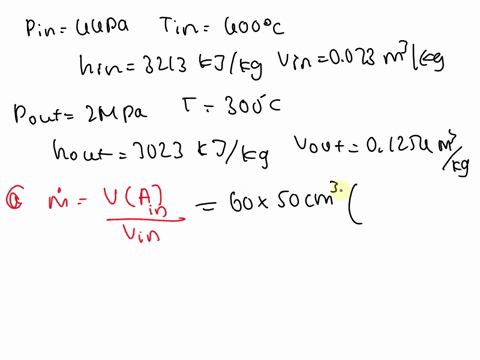 Pin = 4MPa Tin = 400°C
hin = 3213 KJ/kg Vin = 0.073 m³/kg
Pout = 2MPa T = 300°C
hout = 3023 KJ/kg Vout = 0.1254 m³/kg
ⓐ ṁ = V(A)in / Vin = 60 × 50 cm³. (